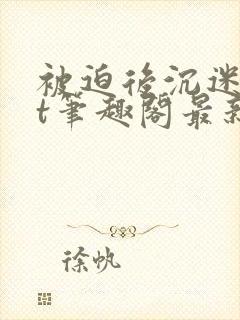 被迫后沉迷
t笔趣阁最新
徐帆